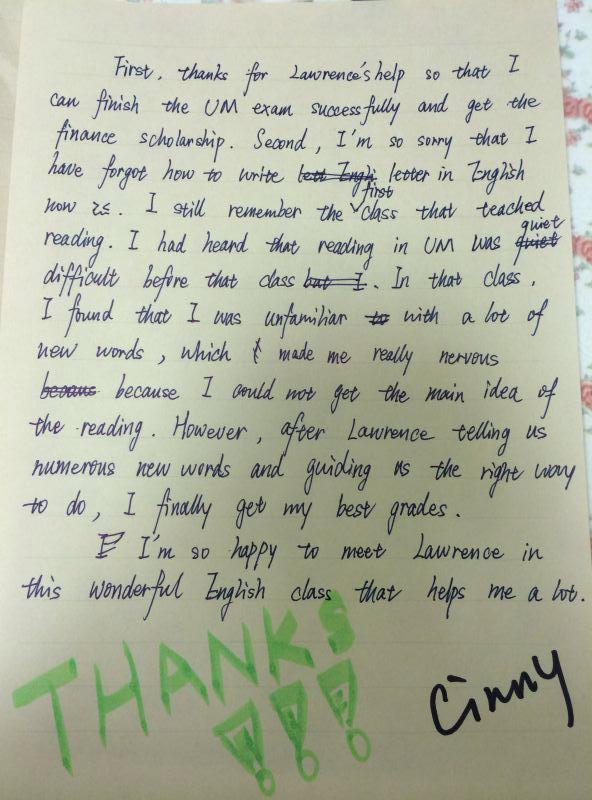 First, thanks for Lawrence's help so that I
can finish the UM exam successfully and get the
finance scholarship. Second, I'm so sorry that I
have forgot how to write letter in English
now ZS. I still remember the first class that teached
reading. I had heard that reading in UM was quiet
difficult before that class. In that class,
I found that I was unfamiliar with a lot of
new words, which made me really nervous
because I could not get the main idea of
the reading. However, after Lawrence telling us
numerous new words and guiding us the right way
to do, I finally get my best grades.
I'm so happy to meet Lawrence in
this wonderful English class that helps me a lot.
THANKS!!!
Cinny